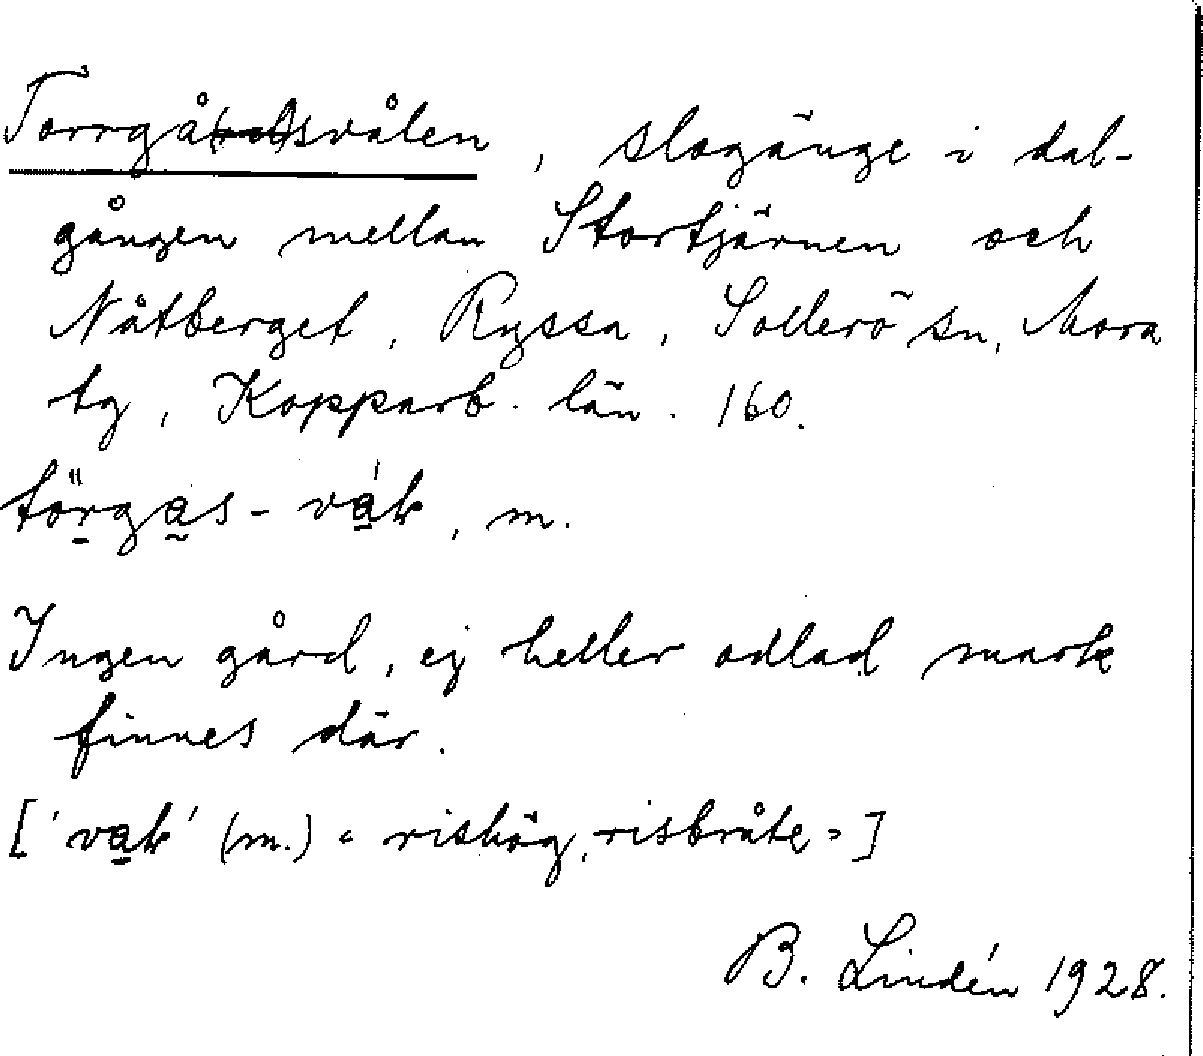 Torrgå(rd)svålen, slogänge i dal-
gången mellan Stortjärnen och
Nåtberget, Ryssa, Sollerö sn, Mora
tg, Kopparb. län. 160.
törgas-vak, m.
Ingen gård, ej heller odlad mark
finnes där.
['vak' (m.) "rishög, risbråte"]
B. Lindén 1928.